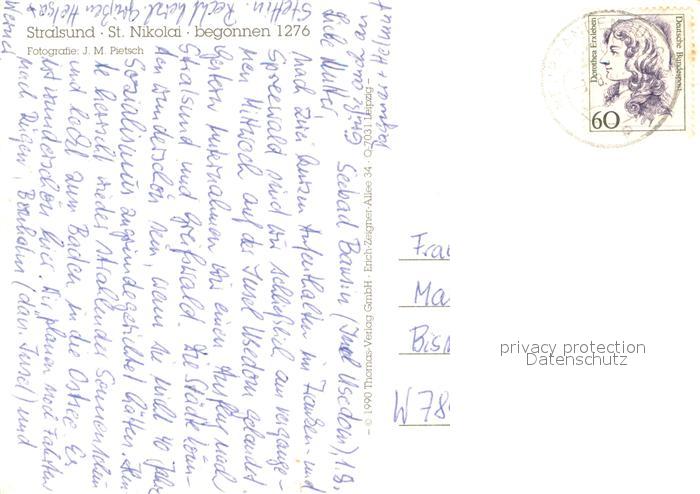 Stralsund · St. Nikolai · begonnen 1276
Fotografie: J. M. Pietsch
– © 1990 Thomas-Verlag GmbH · Erich-Zeigner-Allee 34 · O-7031 Leipzig –
Seebad Bansin (Insel Usedom), 1.8.
Liebe Mutter,
nach zwei kurzen Aufenthalten im Franken- und
Spreewald sind wir schließlich am vergange-
nen Mittwoch auf der Insel Usedom gelandet.
Gestern unternahmen wir einen Ausflug nach
Stralsund und Greifswald. Die Städte könn-
ten wunderschön sein, wenn sie nicht 40 Jahre
Sozialismus zugrundegerichtet hätten. Heu-
te herrscht wieder strahlender Sonnenschein
und lockt zum Baden in die Ostsee. Es
ist wunderschön hier. Wir planen noch Fahrten
nach Rügen, Bornholm (dän. Insel) und
Stettin. Recht herzl. Grüße Helga +
Werner
Dagmar + Helmut
Frau
Ma
Bism
W 78
Deutsche Bundespost
Dorothea Erxleben
60
privacy protection
Datenschutz